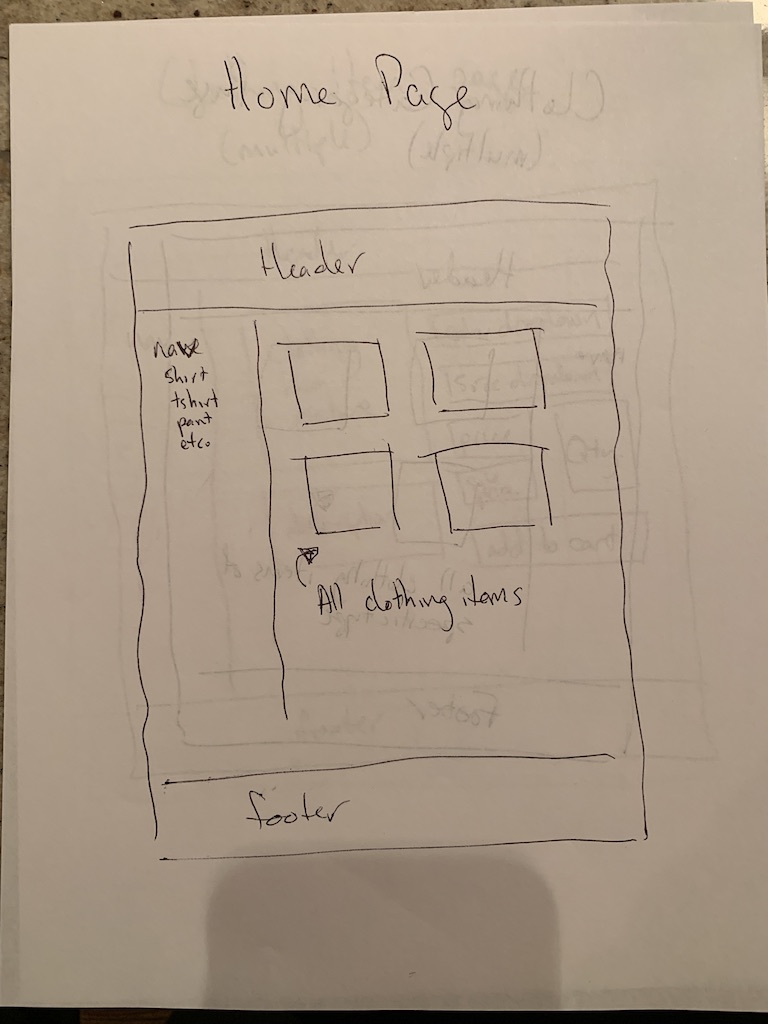 Home Page
Header
shirt
tshirt
pant
etc.
All clothing items
footer